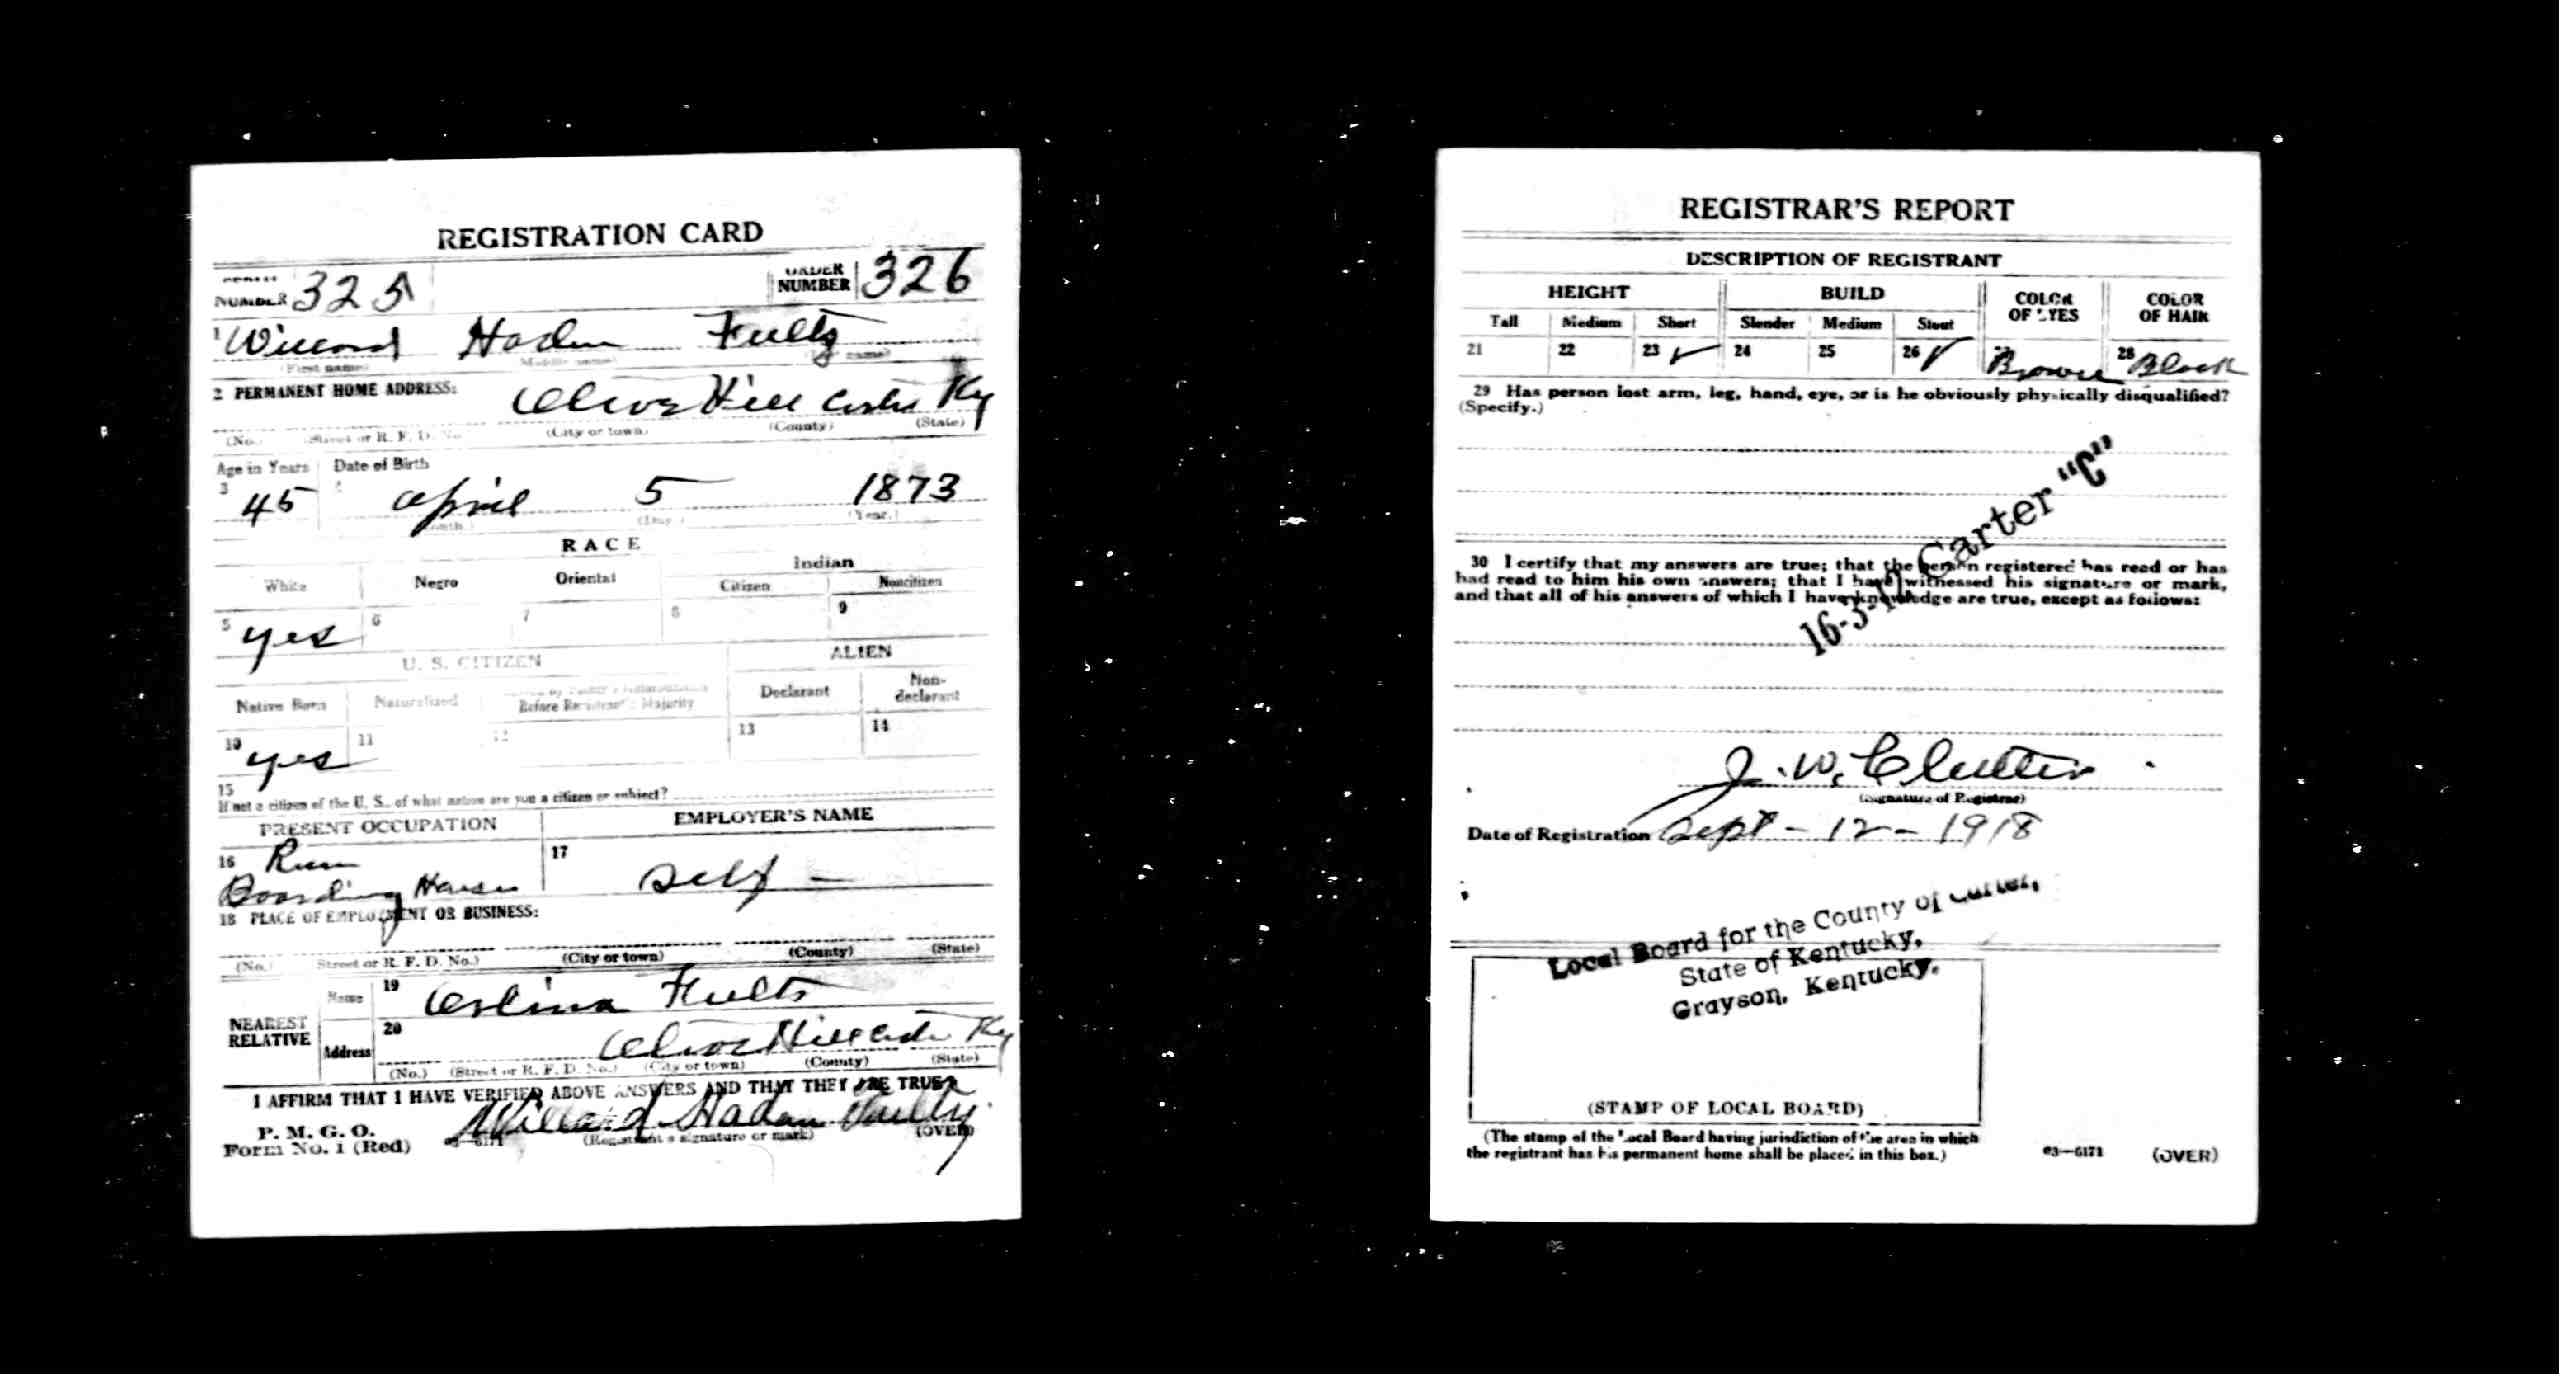 REGISTRATION CARD
NUMBER 325 ORDER NUMBER 326
1 Willard Haden Fultz
(First name) (Middle name) (Last name)
2 PERMANENT HOME ADDRESS:
Olive Hill Carter Ky
(No.) (Street or R. F. D. No.) (City or town) (County) (State)
Age in Years Date of Birth
3 45 4 April 5 1873
(Month.) (Day.) (Year.)
RACE
White Negro Oriental Indian
Citizen Noncitizen
5 yes 6 7 8 9
U. S. CITIZEN ALIEN
Native Born Naturalized Citizen by Father's Naturalization Before Registrant's Majority Declarant Non-declarant
10 yes 11 12 13 14
15
If not a citizen of the U. S., of what nation are you a citizen or subject?
PRESENT OCCUPATION EMPLOYER'S NAME
16 Run 17
Boarding House Self —
18 PLACE OF EMPLOYMENT OR BUSINESS:
(No.) (Street or R. F. D. No.) (City or town) (County) (State)
NEAREST RELATIVE Name 19 Fults
Address 20 Olive Hill Carter Ky
(No.) (Street or R. F. D. No.) (City or town) (County) (State)
I AFFIRM THAT I HAVE VERIFIED ABOVE ANSWERS AND THAT THEY ARE TRUE
P. M. G. O.
Form No. 1 (Red) 03—6171 Willard Hadan Fultz
(Registrant's signature or mark) (OVER)
REGISTRAR'S REPORT
DESCRIPTION OF REGISTRANT
HEIGHT BUILD COLOR OF EYES COLOR OF HAIR
Tall Medium Short Slender Medium Stout
21 22 23 ✓ 24 25 26 ✓ Brown 28 Black
29 Has person lost arm, leg, hand, eye, or is he obviously physically disqualified?
(Specify.)
16-3-12 Carter "C"
30 I certify that my answers are true; that the person registered has read or has
had read to him his own answers; that I have witnessed his signature or mark,
and that all of his answers of which I have knowledge are true, except as follows:
J. W.
(Signature of Registrar)
Date of Registration Sept - 12 - 1918
Local Board for the County of Carter,
State of Kentucky,
Grayson, Kentucky.
(STAMP OF LOCAL BOARD)
(The stamp of the Local Board having jurisdiction of the area in which
the registrant has his permanent home shall be placed in this box.)
03—6171 (OVER)